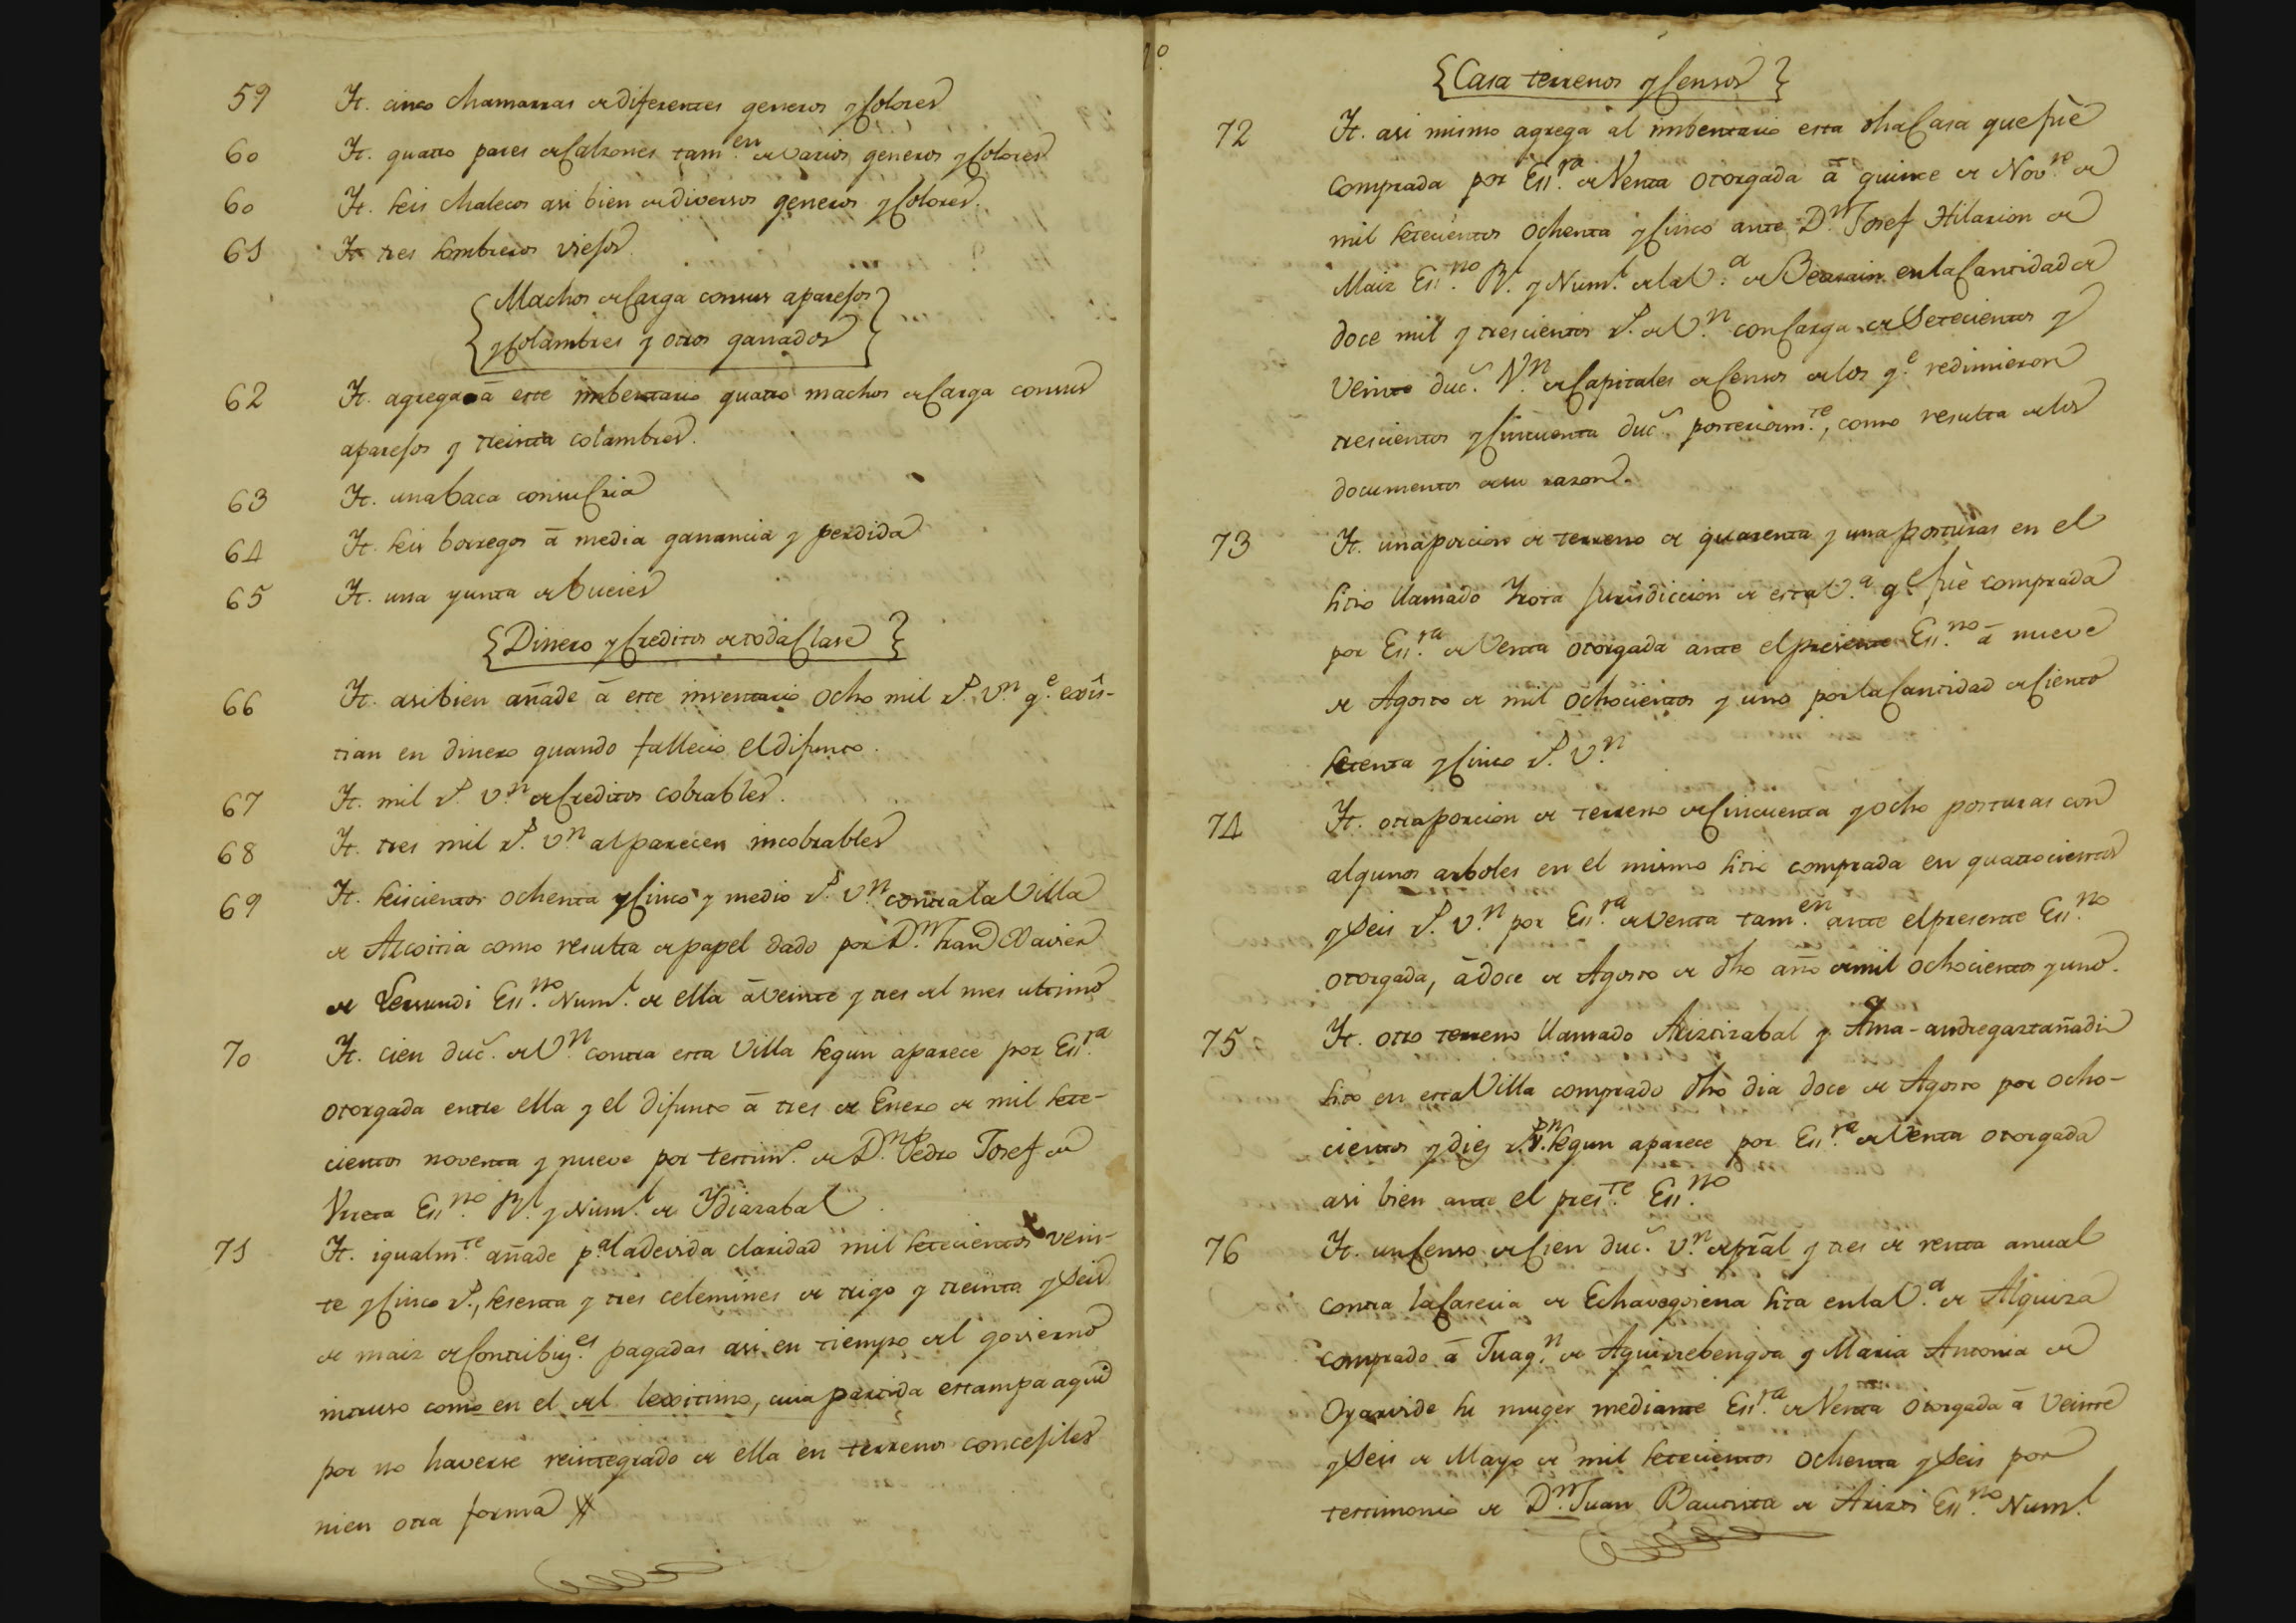 59 It. cinco chamarras de diferentes generos y Colores
60 It. quatro pares de Calzones tam.en de varios generos y Colores
60 It. seis chalecos asi bien de diversos generos y Colores.
61 It. tres sombreros viejos.
{Machos de Carga con sus aparejos
y Colambres y otros ganados}
62 It. agrega â este imbentario quatro machos de Carga con sus
aparejos y treinta colambres.
63 It. una baca con su Cria
64 It. seis borregos â media ganancia y perdida
65 It. una yunta de bueies
{Dinero y Creditos de toda Clase}
66 It. asi bien añade â este inventario ocho mil r.s v.n q.e exis-
tian en dinero quando fallecio el difunto.
67 It. mil r.s v.n de Creditos cobrables.
68 It. tres mil r.s v.n al parecer incobrables
69 It. seiscientos ochenta y Cinco y medio r.s v.n contra la Villa
de Azcoitia como resulta de papel dado por D.n Fran.co Xavier
de Lersundi Ess.no Num.l de ella â veinte y tres del mes ultimo
70 It. cien duc.s de V.n contra esta Villa segun aparece por Ess.ra
otorgada entre ella y el difunto â tres de Enero de mil sete-
cientos noventa y nueve por testim.o de D.n Pedro Josef de
Urreta Ess.no R.l y Num.l de Ydiazabal.
71 It. igualm.te añade p.a la devida claridad mil setecientos vein-
te y Cinco r.s, sesenta y tres celemines de trigo y treinta y Seis
de maiz de Contribuz.es pagadas asi en tiempo del govierno
intruso como en el del lexitimo, cuia partida estampa aqui
por no haverse reintegrado de ella en terrenos concejiles
ni en otra forma
{Casa terrenos y Censos}
72 It. asi mismo agrega al imbentario esta dha Casa que fuè
comprada por Ess.ra de Venta otorgada â quince de Nov.re de
mil setecientos ochenta y Cinco ante D.n Josef Hilarion de
Maiz Ess.no R.l y Num.l de la V.a de Beasain en la Cantidad de
doce mil y trescientos r.s de V.n con Carga de Setecientos y
Veinte duc.s V.n de Capitales de Censos de los q.e redimieron
trescientos y Cincuenta duc.s posteriorm.te, como resulta de los
documentos de su razon.
73 It. una porcion de terreno de quarenta y una posturas en el
sitio llamado Jurisdiccion de esta V.a q.e fuè comprada
por Ess.ra de Venta otorgada ante el presente Ess.no â nueve
de Agosto de mil ochocientos y uno por la Cantidad de Ciento
setenta y Cinco r.s V.n
74 It. otra porcion de terreno de Cincuenta y ocho posturas con
algunos arboles en el mismo sitio comprada en quatrocientos
y Seis r.s v.n por Ess.ra de Venta tam.en ante el presente Ess.no
otorgada, â doce de Agosto de dho año de mil ochocientos y uno.
75 It. otro terreno llamado Ariztizabal y Ama-andregaztañadi
sito en esta Villa comprado dho dia doce de Agosto por ocho-
cientos y diez r.s v.n segun aparece por Ess.ra de Venta otorgada
asi bien ante el pres.te Ess.no
76 It. un Censo de Cien duc.s v.n de pral y tres de renta anual
contra la Caseria de Echavegoiena sita en la V.a de Alquiza
comprado â Juaq.n de Aguirrebengoa y Maria Antonia de
Oyarvide su muger mediante Ess.ra de Venta otorgada â Veinte
y Seis de Mayo de mil setecientos ochenta y Seis por
testimonio de D.n Juan Bautista de Arizti Ess.no Num.l